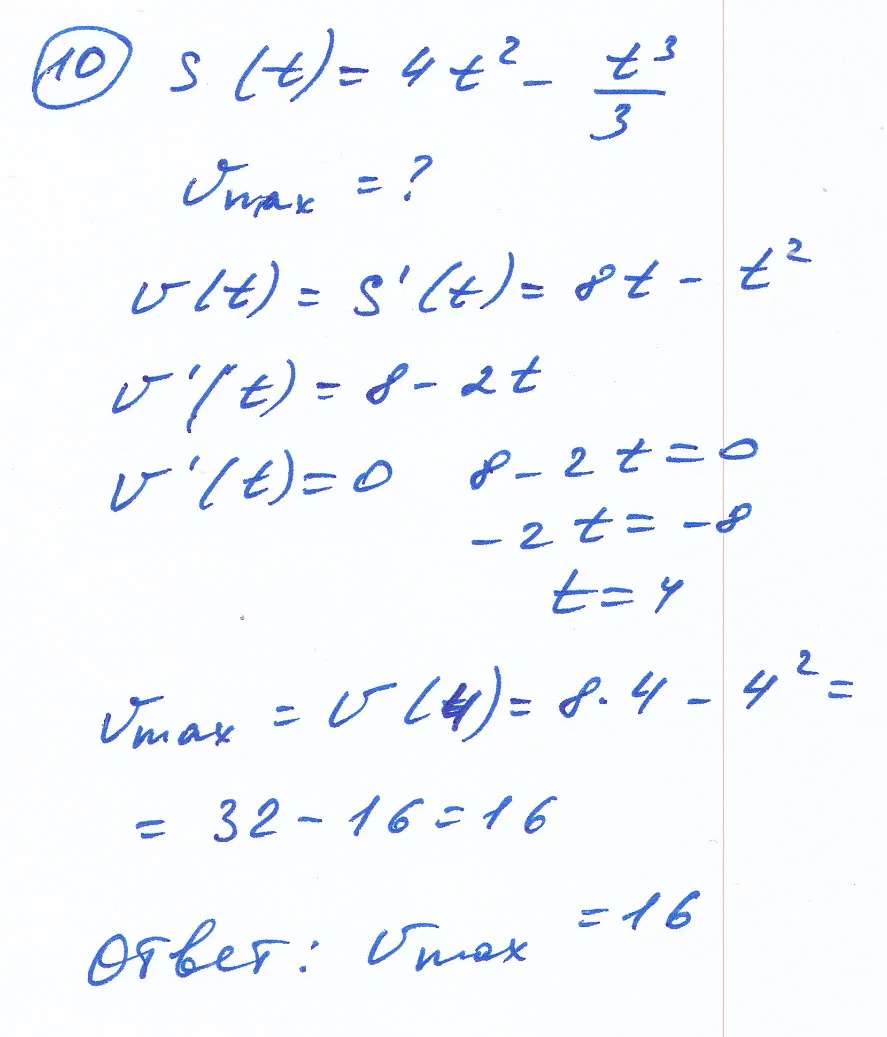 10 S(t) = 4t² - t³/3
υmax = ?
υ(t) = S'(t) = 8t - t²
υ'(t) = 8 - 2t
υ'(t) = 0 8 - 2t = 0
-2t = -8
t = 4
υmax = υ(4) = 8·4 - 4² =
= 32 - 16 = 16
Ответ: υmax = 16